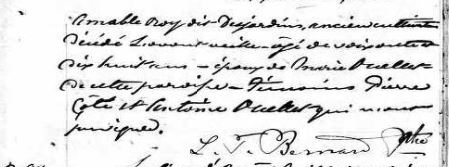 Amable Roy dit Desjardins, ancien cultivateur
décédé l'avant veille âgé de soixante et
dix huit ans - époux de Marie Ouellet
de cette paroisse - Témoins Pierre
Coté et Antoine Ouellet qui n'ont
pu signer.
L. T. Bernard Ptre